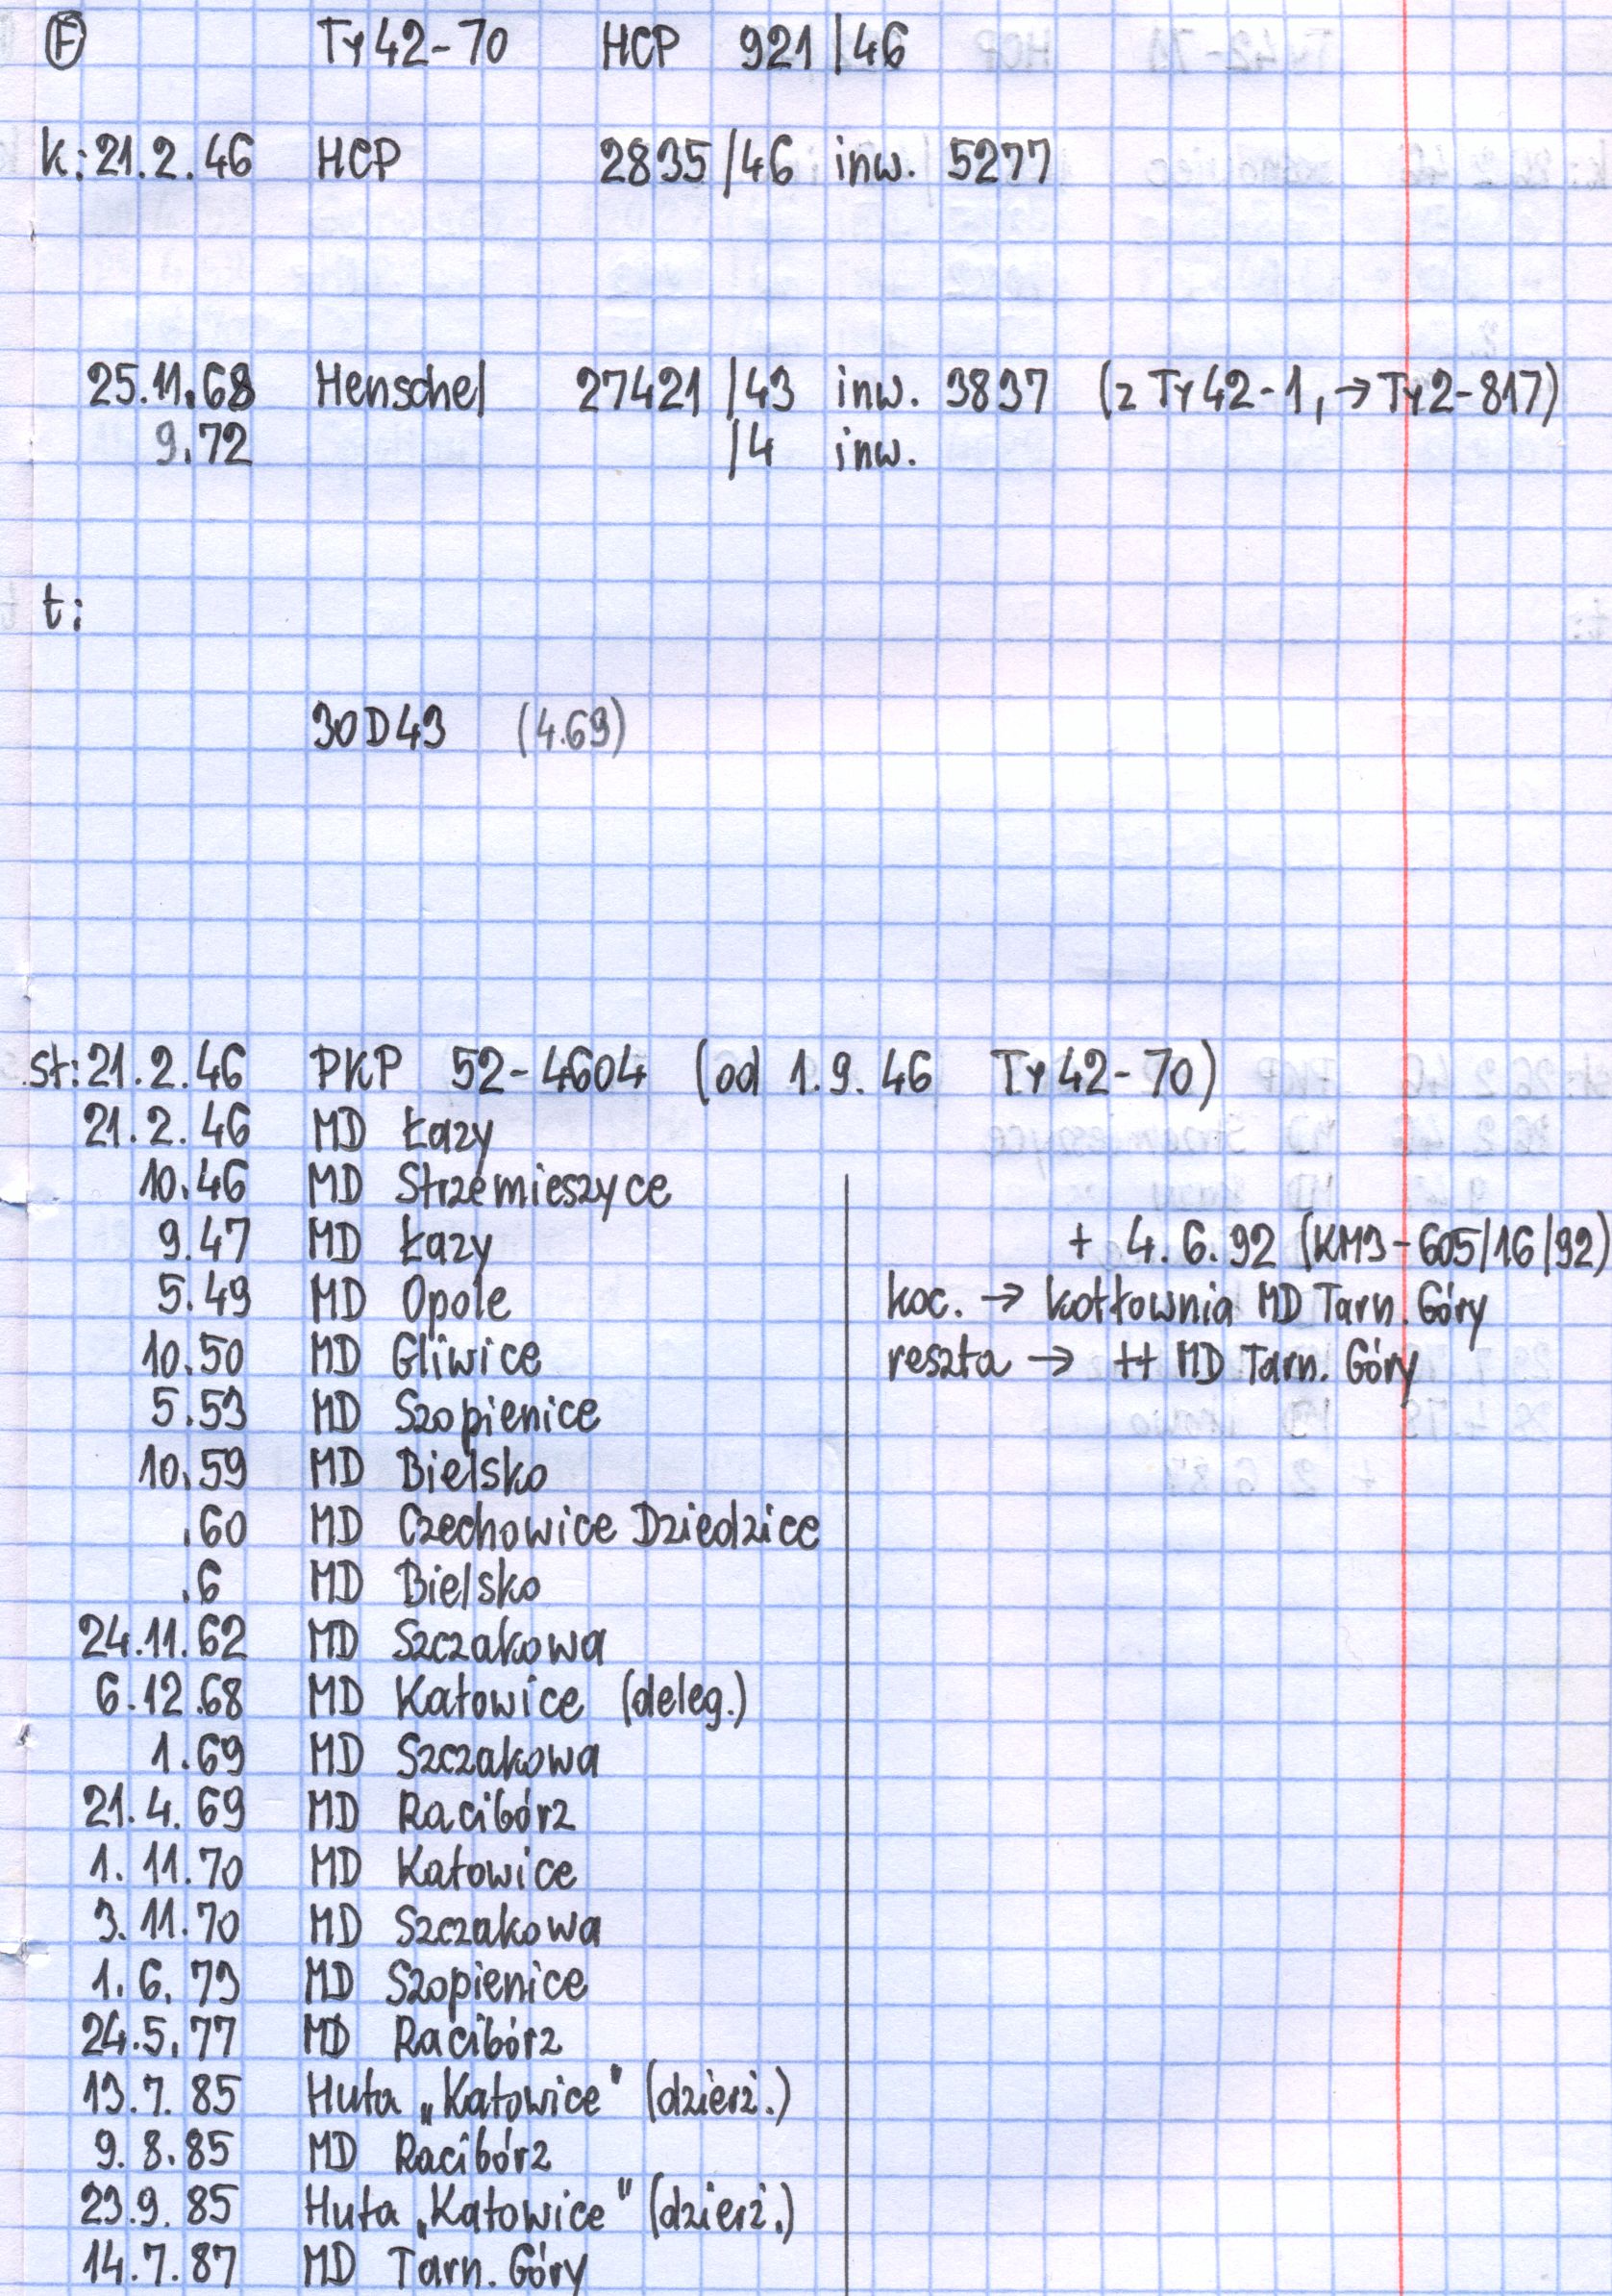 F Ty42-70 HCP 921/46
k: 21.2.46 HCP 2835/46 inw. 5277
25.11.68 Henschel 27421/43 inw. 3837 (z Ty42-1, → Ty2-817)
9.72 /4 inw.
t:
30D43 (4.69)
st: 21.2.46 PKP 52-4604 (od 1.9.46 Ty42-70)
21.2.46 MD Łazy
10.46 MD Strzemieszyce
9.47 MD Łazy
5.49 MD Opole
10.50 MD Gliwice
5.53 MD Szopienice
10.59 MD Bielsko
.60 MD Czechowice Dziedzice
.6 MD Bielsko
24.11.62 MD Szczakowa
6.12.68 MD Katowice (deleg.)
1.69 MD Szczakowa
21.4.69 MD Racibórz
1.11.70 MD Katowice
3.11.70 MD Szczakowa
1.6.73 MD Szopienice
24.5.77 MD Racibórz
13.7.85 Huta „Katowice" (dzierż.)
9.8.85 MD Racibórz
23.9.85 Huta „Katowice" (dzierż.)
14.7.87 MD Tarn. Góry
+ 4.6.92 (KM3-605/16/92)
koc. → kotłownia MD Tarn. Góry
reszta → ++ MD Tarn. Góry